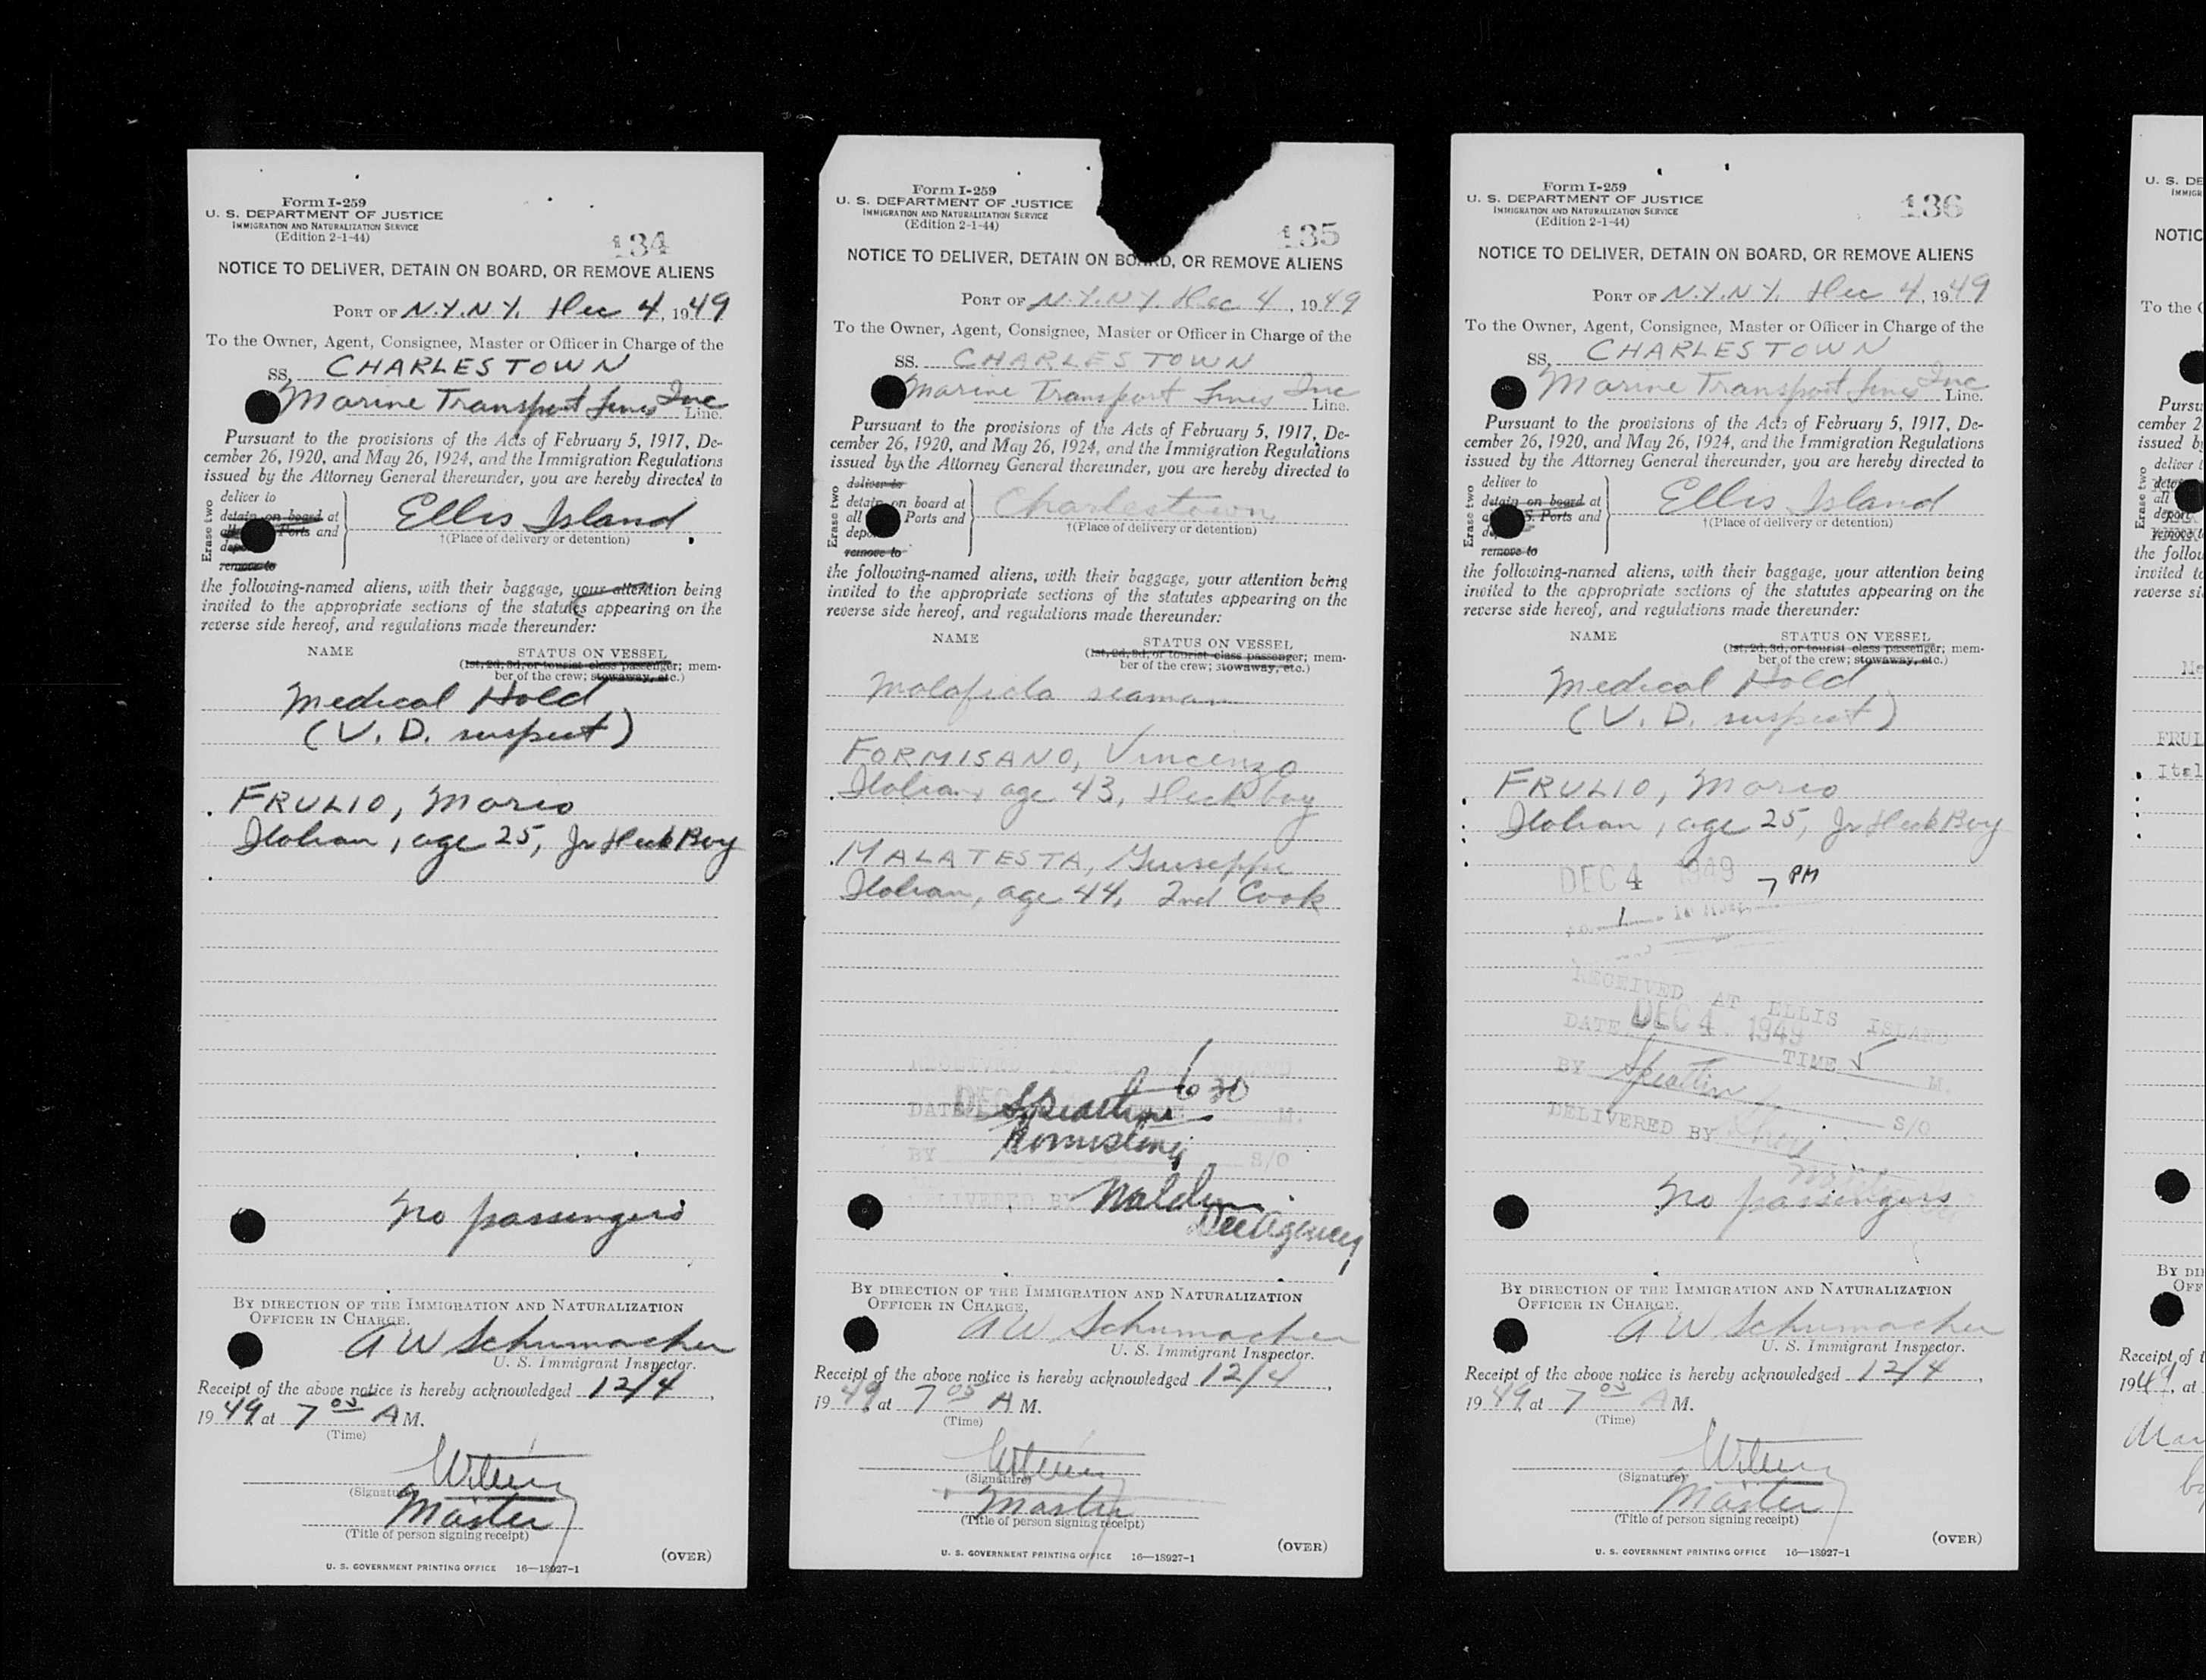 Form I-259
U. S. DEPARTMENT OF JUSTICE
IMMIGRATION AND NATURALIZATION SERVICE
(Edition 2-1-44)
134
NOTICE TO DELIVER, DETAIN ON BOARD, OR REMOVE ALIENS
PORT OF N.Y.N.Y. Dec 4, 1949
To the Owner, Agent, Consignee, Master or Officer in Charge of the
SS. CHARLESTOWN
Marine Transport Lines Inc Line.
Pursuant to the provisions of the Acts of February 5, 1917, De-
cember 26, 1920, and May 26, 1924, and the Immigration Regulations
issued by the Attorney General thereunder, you are hereby directed to
Erase two
deliver to
detain on board at
Ports and
remove to
Ellis Island
†(Place of delivery or detention)
the following-named aliens, with their baggage, your attention being
invited to the appropriate sections of the statutes appearing on the
reverse side hereof, and regulations made thereunder:
NAME
STATUS ON VESSEL
(1st, 2d, 3d, or tourist class passenger; mem-
ber of the crew; stowaway, etc.)
Medical Hold
(V. D. suspect)
FRULIO, Mario
Italian, age 25, Jr Deck Boy
No passengers
BY DIRECTION OF THE IMMIGRATION AND NATURALIZATION
OFFICER IN CHARGE.
A W Schumacher
U. S. Immigrant Inspector.
Receipt of the above notice is hereby acknowledged 12/4,
1949, at 7 05 A M.
(Time)
(Signature)
Master
(Title of person signing receipt)
(OVER)
U. S. GOVERNMENT PRINTING OFFICE 16—18927-1
Form I-259
U. S. DEPARTMENT OF JUSTICE
IMMIGRATION AND NATURALIZATION SERVICE
(Edition 2-1-44)
135
NOTICE TO DELIVER, DETAIN ON BOARD, OR REMOVE ALIENS
PORT OF N.Y.N.Y. Dec 4, 1949
To the Owner, Agent, Consignee, Master or Officer in Charge of the
SS. CHARLESTOWN
Marine Transport Lines Inc Line.
Pursuant to the provisions of the Acts of February 5, 1917, De-
cember 26, 1920, and May 26, 1924, and the Immigration Regulations
issued by the Attorney General thereunder, you are hereby directed to
Erase two
deliver to
detain on board at
all Ports and
remove to
Charlestown
†(Place of delivery or detention)
the following-named aliens, with their baggage, your attention being
invited to the appropriate sections of the statutes appearing on the
reverse side hereof, and regulations made thereunder:
NAME
STATUS ON VESSEL
(1st, 2d, 3d, or tourist class passenger; mem-
ber of the crew; stowaway, etc.)
Malafida seaman
FORMISANO, Vincenzo
Italian, age 43, Deck boy
MALATESTA, Giuseppe
Italian, age 44, 2nd Cook
6 30
DATE
BY S/O
DELIVERED BY
BY DIRECTION OF THE IMMIGRATION AND NATURALIZATION
OFFICER IN CHARGE.
A W Schumacher
U. S. Immigrant Inspector.
Receipt of the above notice is hereby acknowledged 12/4,
1949, at 7 05 A M.
(Time)
(Signature)
Master
(Title of person signing receipt)
(OVER)
U. S. GOVERNMENT PRINTING OFFICE 16—18927-1
Form I-259
U. S. DEPARTMENT OF JUSTICE
IMMIGRATION AND NATURALIZATION SERVICE
(Edition 2-1-44)
136
NOTICE TO DELIVER, DETAIN ON BOARD, OR REMOVE ALIENS
PORT OF N.Y.N.Y. Dec 4, 1949
To the Owner, Agent, Consignee, Master or Officer in Charge of the
SS. CHARLESTOWN
Marine Transport Lines Inc Line.
Pursuant to the provisions of the Acts of February 5, 1917, De-
cember 26, 1920, and May 26, 1924, and the Immigration Regulations
issued by the Attorney General thereunder, you are hereby directed to
Erase two
deliver to
detain on board at
S. Ports and
remove to
Ellis Island
†(Place of delivery or detention)
the following-named aliens, with their baggage, your attention being
invited to the appropriate sections of the statutes appearing on the
reverse side hereof, and regulations made thereunder:
NAME
STATUS ON VESSEL
(1st, 2d, 3d, or tourist class passenger; mem-
ber of the crew; stowaway, etc.)
Medical Hold
(V. D. suspect)
FRULIO, Mario
Italian, age 25, Jr Deck Boy
DEC 4 1949 7 PM
RECEIVED AT ELLIS ISLAND
DATE DEC 4 1949
TIME M.
BY
S/O
DELIVERED BY
No passengers
BY DIRECTION OF THE IMMIGRATION AND NATURALIZATION
OFFICER IN CHARGE.
A W Schumacher
U. S. Immigrant Inspector.
Receipt of the above notice is hereby acknowledged 12/4,
1949, at 7 05 A M.
(Time)
(Signature)
Master
(Title of person signing receipt)
(OVER)
U. S. GOVERNMENT PRINTING OFFICE 16—18927-1
U. S. DE
NOTIC
To the
Pursu
cember 2
issued b
Erase two
deliver t
all
the follow
invited to
reverse si
FRUL
Ital
BY DI
OFF
Receipt of t
1949, at